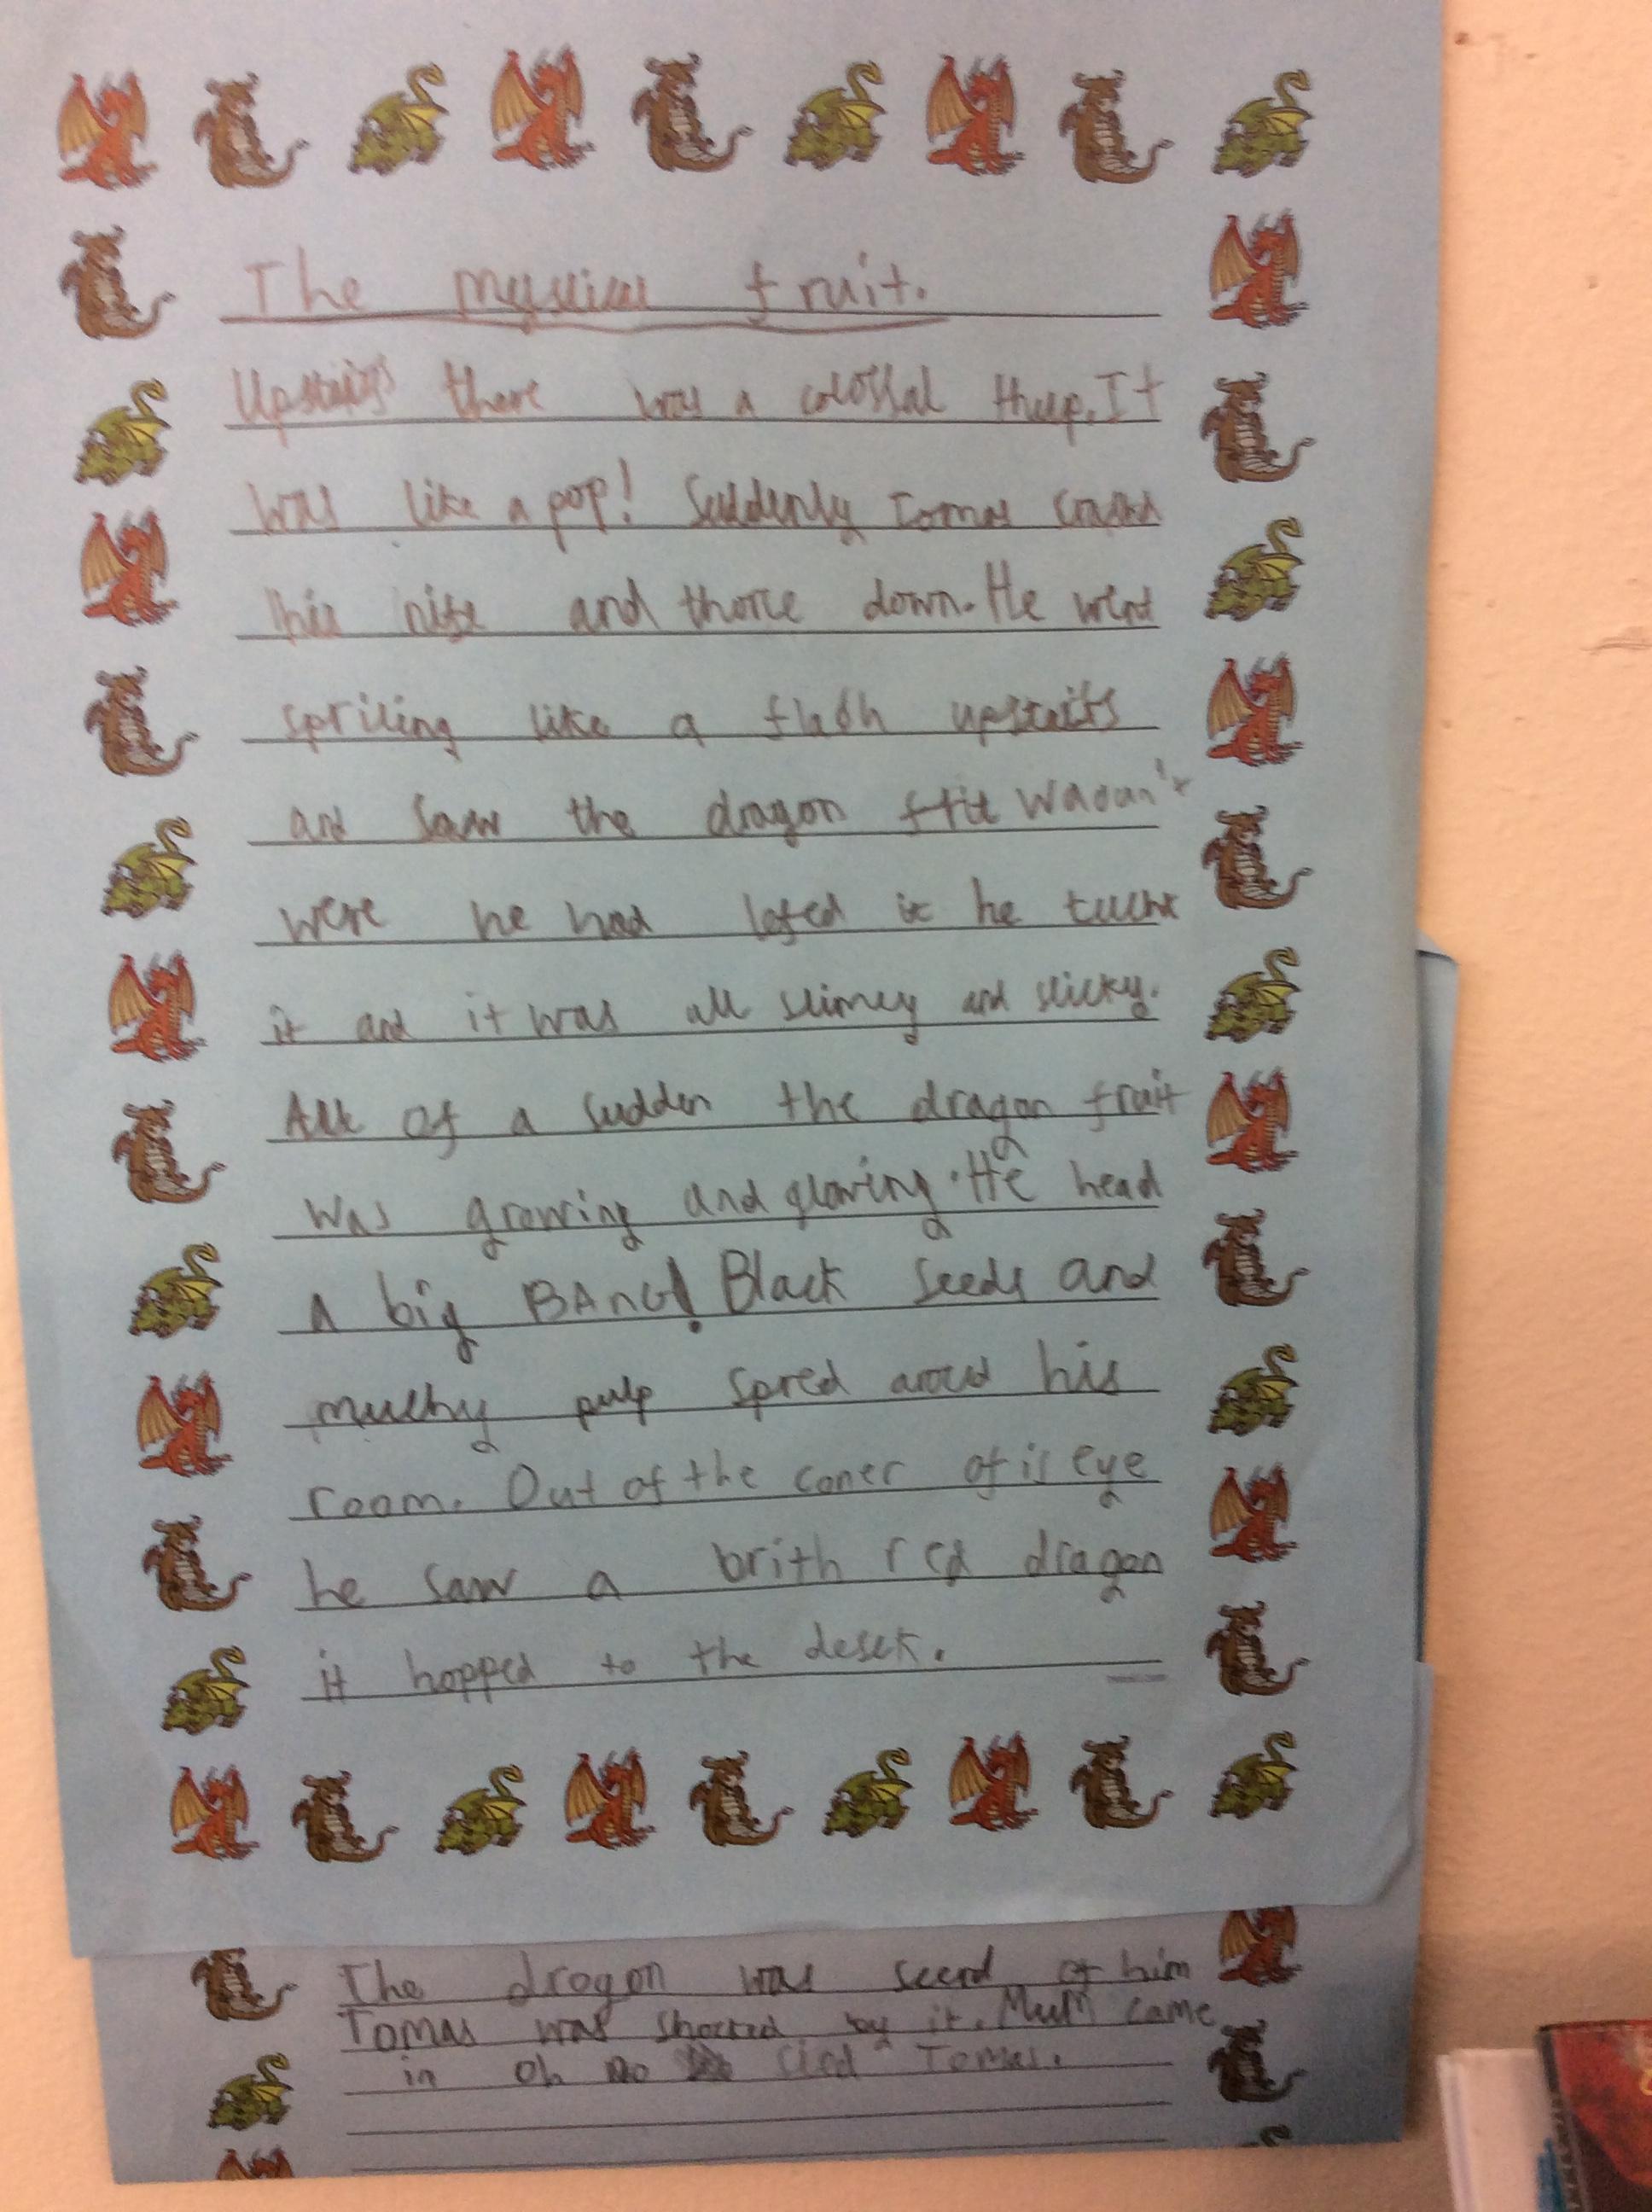 The mystical fruit.
Upstairs there was a colossal thup. It
was like a pop! Suddenly Tomas
his and thorce down. He went
spriling like a flash upstairs
and saw the dragon wasan't
were he had lefed it he
it and it was all slimey and sticky.
All of a sudden the dragon fruit
was growing and glowing. He head
A big BANG! Black seeds and
pulp spred around his
room. Out of the coner of is eye
he saw a brith red dragon
it hopped to the desck.
The dragon was of him
Tomas was by it. Mum came
in Oh no Tomas.